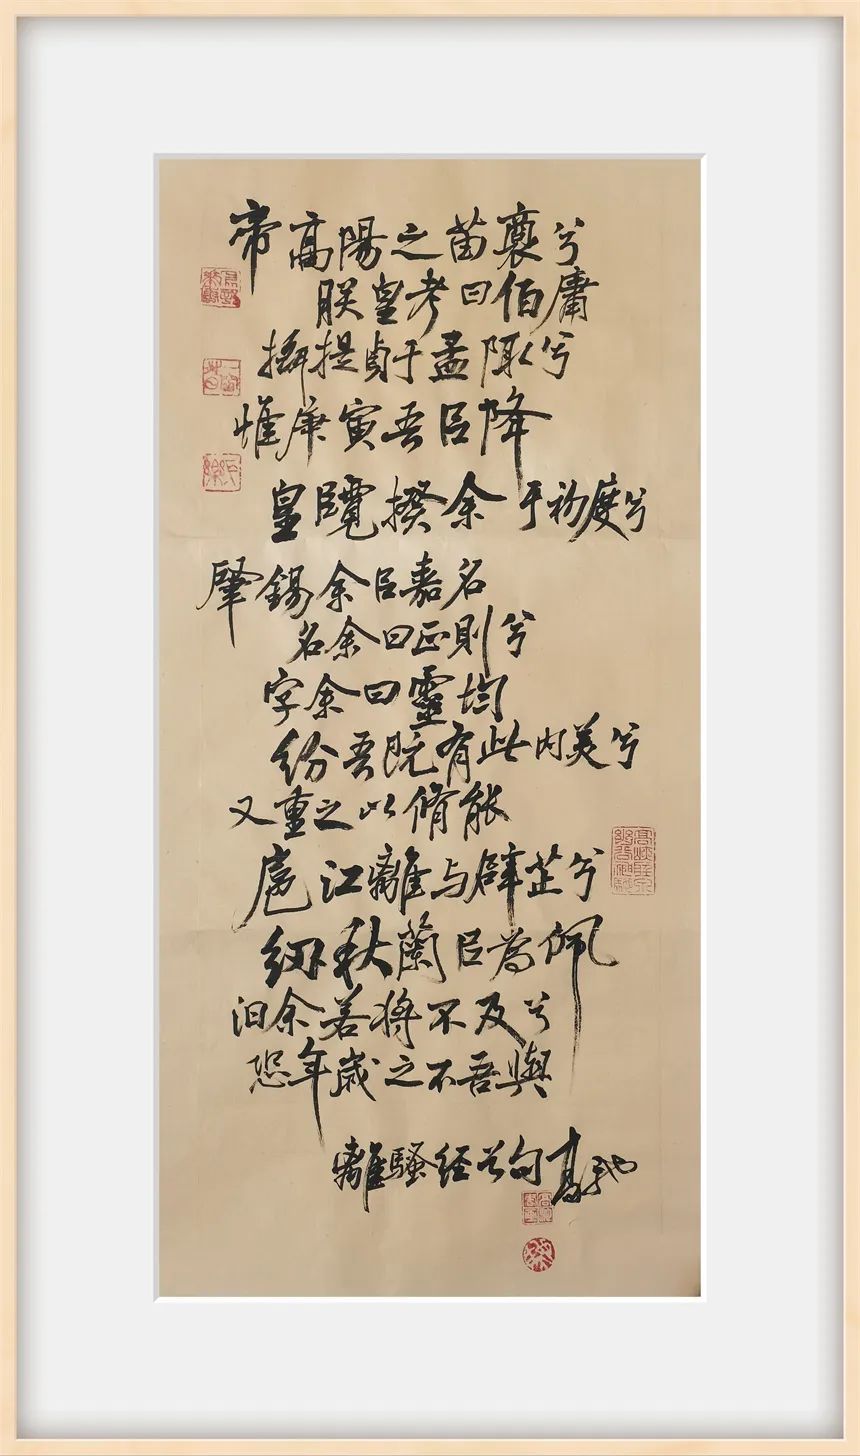 帝高陽之苗裔兮
朕皇考曰伯庸
攝提貞于孟陬兮
惟庚寅吾㠯降
皇覽揆余于初度兮
肇錫余㠯嘉名
名余曰正則兮
字余曰靈均
紛吾既有此内美兮
又重之以脩能
扈江離与辟芷兮
紉秋蘭㠯為佩
汩余若將不及兮
恐年歲之不吾與
離騷經首句